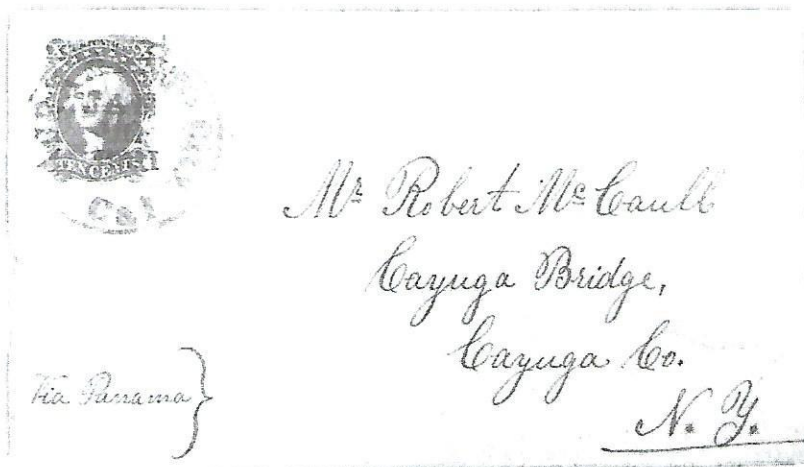 TEN CENTS
CAL
Mr Robert McCaull
Cayuga Bridge,
Cayuga Co.
N. Y.
Via Panama